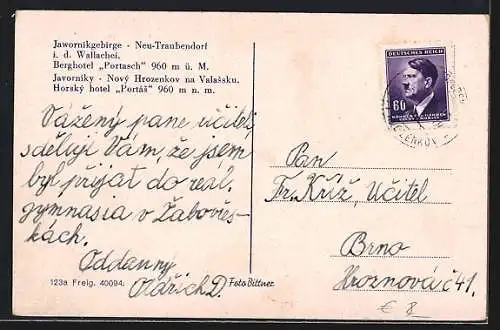 Jawornikgebirge - Neu-Traubendorf
i. d. Wallachei.
Berghotel „Portasch" 960 m ü. M.
Javorníky - Nový Hrozenkov na Valašsku.
Horský hotel „Portáš" 960 m n. m.
Vážený pane učiteli,
sděluji Vám, že jsem
byl přijat do real.
gymnasia v Žabovřes-
kách.
Oddaný
Oldřich D.
123a Freig. 40094.
Foto Bittner
DEUTSCHES REICH
60
BÖHMEN UND MÄHREN
ČECHY A MORAVA
Pan
Fr. Kříž, Učitel
Brno
Hroznová č 41.
€ 8